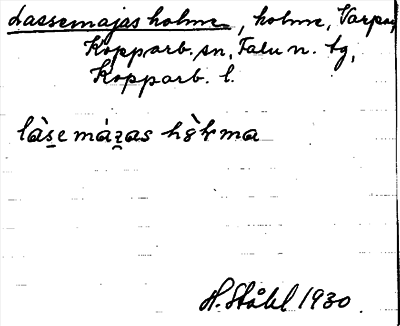 Lassemajas holme, holme, Varpan,
Kopparb. sn, Falu n. tg,
Kopparb. l.
làse mázas
H. Ståhl 1930.